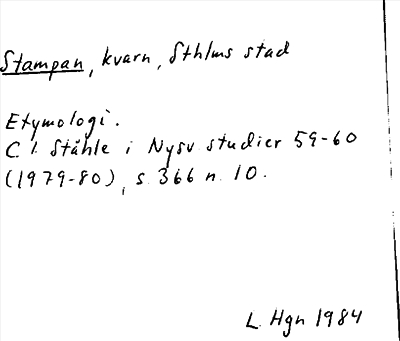 Stampan, kvarn, Sthlms stad
Etymologi.
C. I. Ståhle i Nysv. studier 59-60
(1979-80), s. 366 n. 10.
L. Hgn 1984